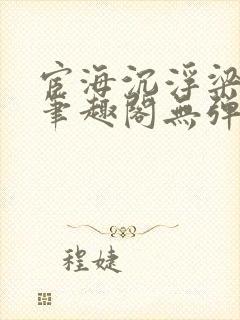 宦海沉浮梁
笔趣阁無弹
程婕